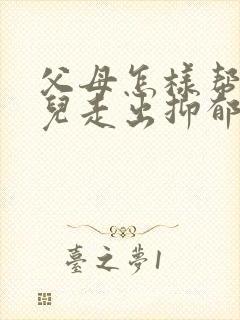 父母怎樣幫
兒走出抑郁
臺之夢1